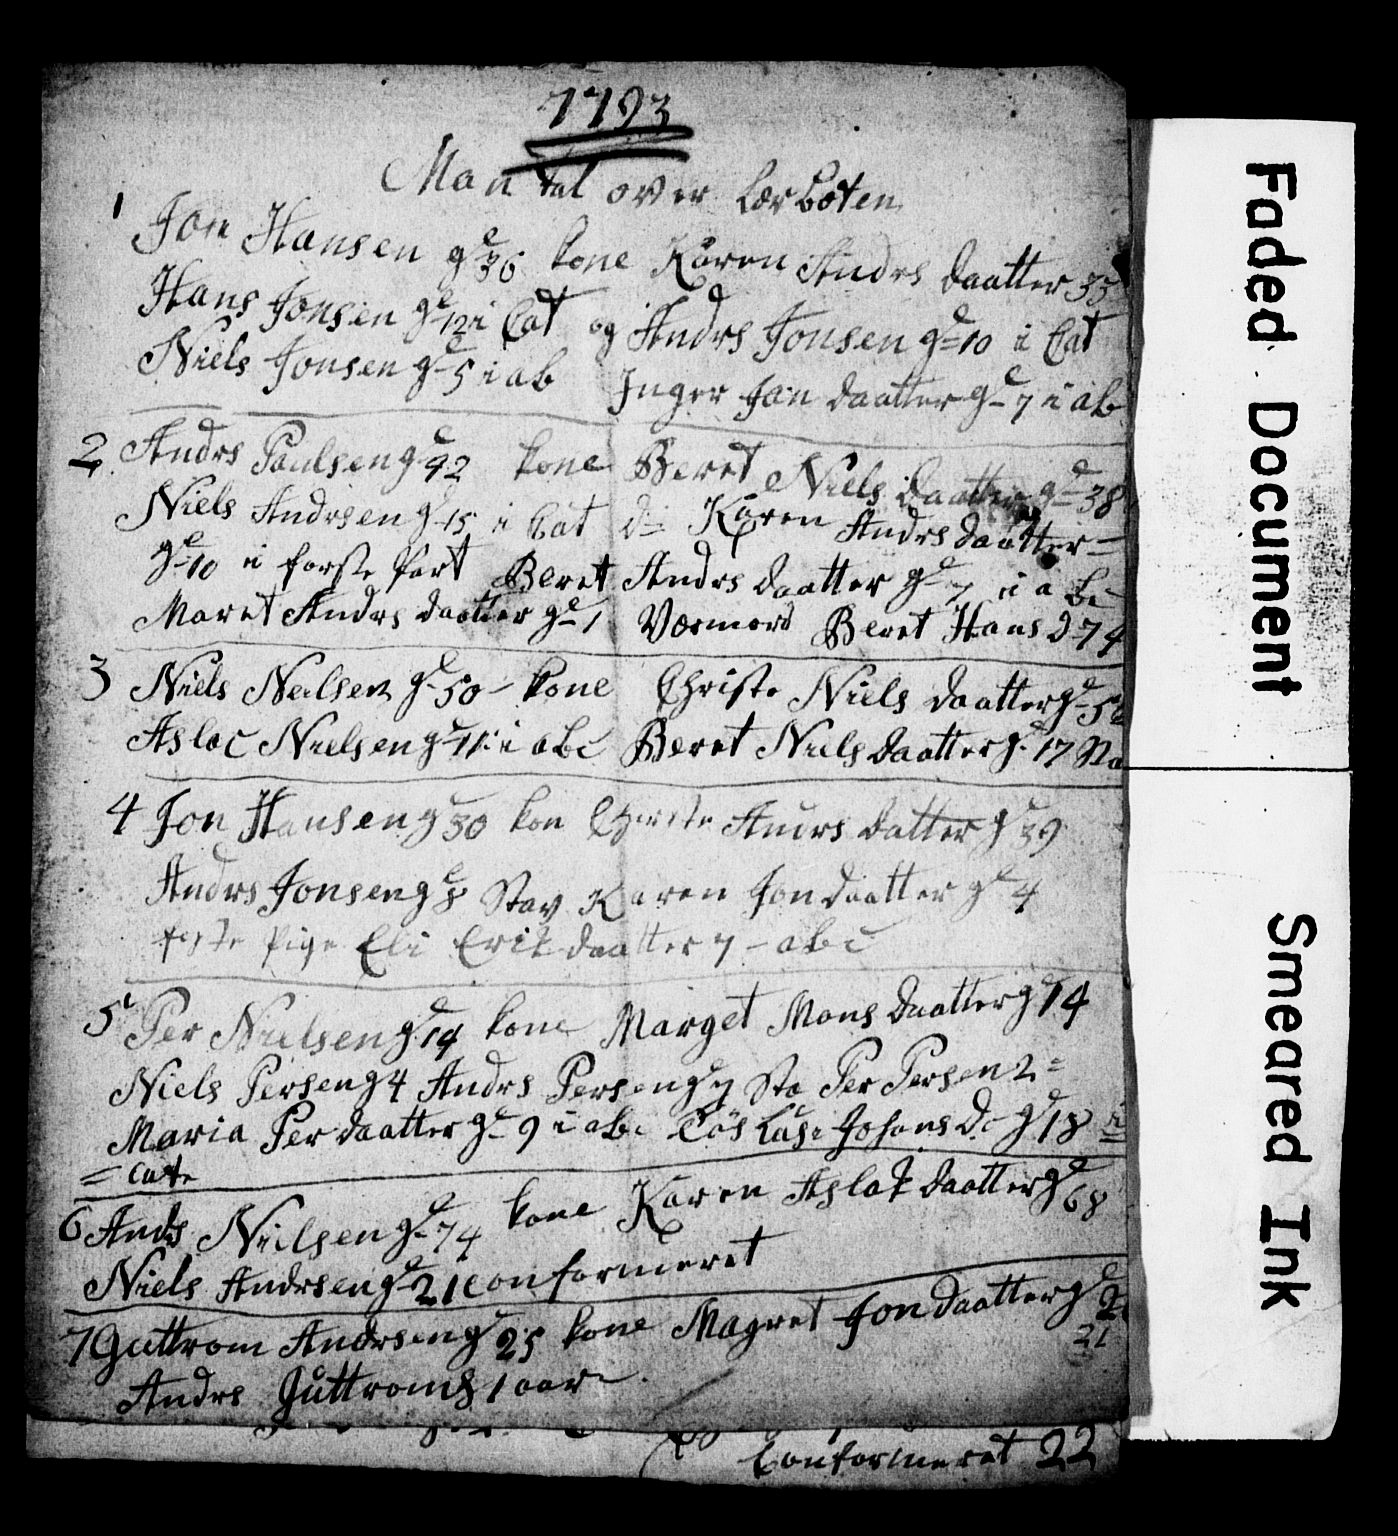 1793
Man tal over Lærboten
1 Jon Hansen gd 36 kone Karen Andrs daatter 33
Hans Jonsen gd 12 i Cat og Andrs Jonsen gd 10 i Cat
Niels Jonsen gd 5 i ab Inger Jon daatter gd 7 i ab
2 Andrs Paulsen gd 42 kone Beret Niels daatter gd 38
Niels Andrsen gd 15 i Cat d Karen Andrs daatter
gd 10 i forste part Beret Andrs daatter gd 7 i a bc
Maret Andrs daatter gd 1 Værmord Beret Hans d 74
3 Niels Neilsen gd 50 kone Christe Niels daatter gd
Aslac Nielsen gd 11 i abc Beret Niels daatter gd 17 Sta
4 Jon Hansen gd 30 kon Christe Andrs datter gd 39
Andrs Jonsen gd 8 Stav Karen Jon daatter gd 4
foste pige Eli Erik daatter 7 - abc
5 Per Nielsen gd kone Marget Mons daatter gd
Niels Persen g 4 Andrs Persen gd 7 Sta Per Persen 2
Maria Per daatter gd 9 i abc Tøs Johans D gd 18
= Cate
6 Ands Nielsen gd 74 kone Karen Aslak daatter gd 68
Niels Andrsen gd 21 Conformeret
7 Guttrom Andrsen gd 25 kone Magret Jon daatter gd
21
Andrs Guttroms 1 aar
Conformeret 22
Faded Document
Smeared Ink